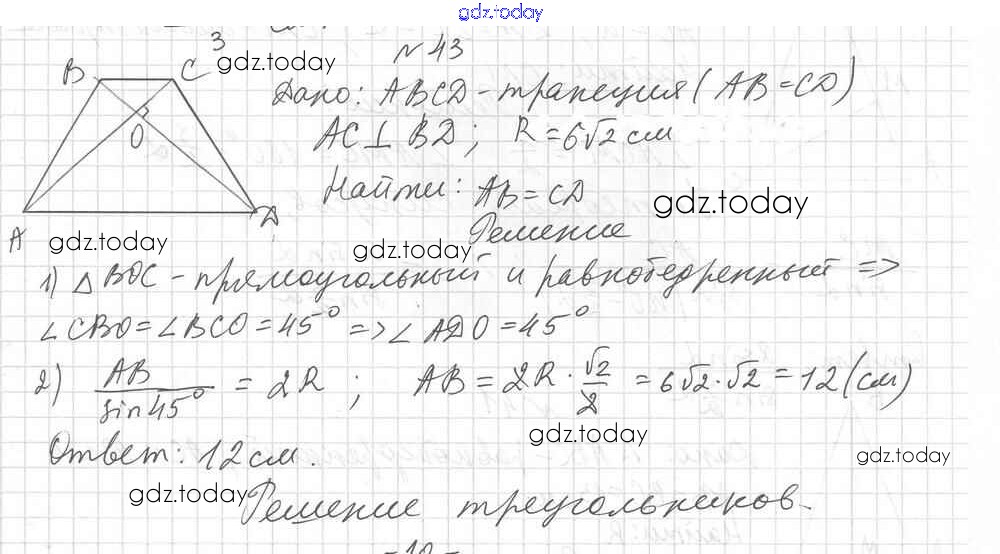 gdz.today
№43
gdz.today
B C 3
Дано: ABCD - трапеция (AB = CD)
O
AC ⊥ BD; R = 6√2 см
Найти: AB = CD
gdz.today
A D
gdz.today
gdz.today
Решение
1) △BOC - прямоугольный и равнобедренный =>
∠CBO = ∠BCO = 45° => ∠ADO = 45°
2) AB/sin45° = 2R; AB = 2R · √2/2 = 6√2 · √2 = 12 (см)
gdz.today
Ответ: 12 см.
gdz.today
gdz.today
Решение треугольников.